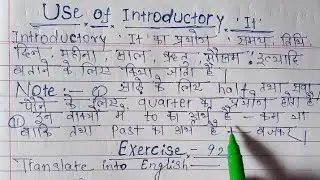 Use of Introductory 'It'
Introductory 'It' का प्रयोग समय, तिथि
दिन, महीना, साल, ऋतु, मौसम इत्यादि
बताने के लिए किया जाता है।
Note:- ① साढ़े के लिए half तथा सवा
पौने के लिए quarter का प्रयोग होता है।
② इन वाक्यों में to का अर्थ है - कम या
बाकि तथा Past का अर्थ है - बजकर।
Exercise - 92
Translate into English